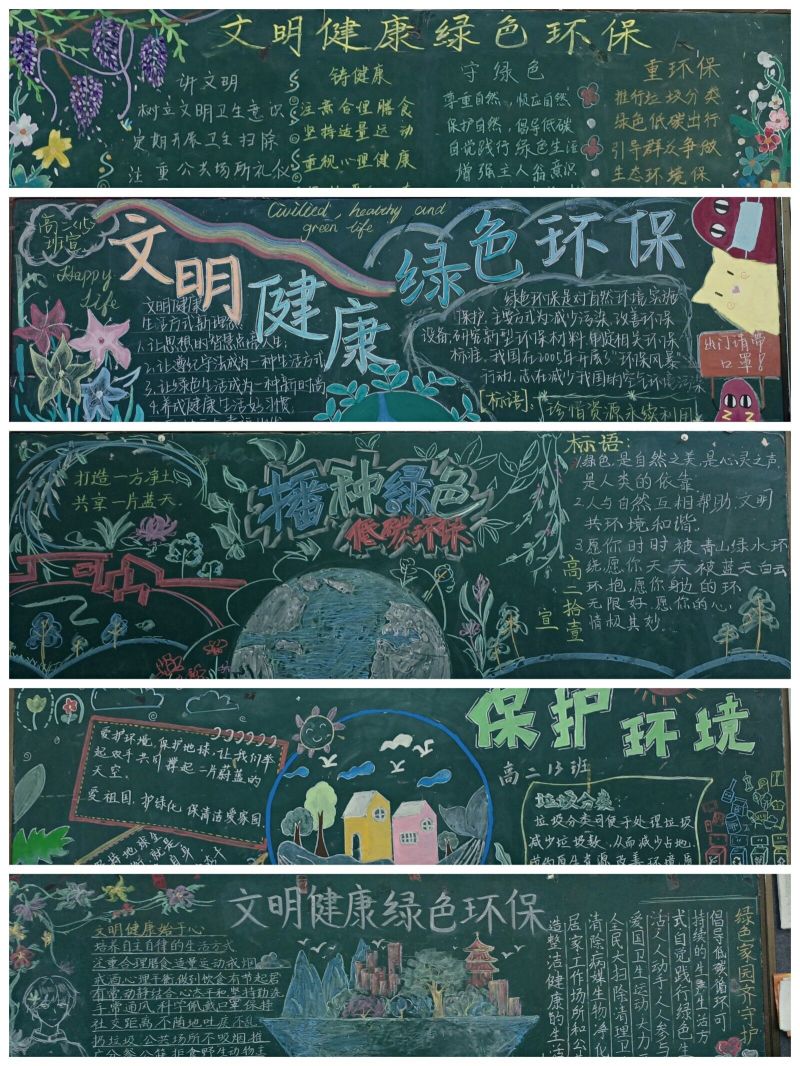 文明健康绿色环保
讲文明
树立文明卫生意识
定期开展卫生扫除
注重公共场所礼仪
铸健康
注意合理膳食
坚持适量运动
重视心理健康
守绿色
尊重自然 顺应自然
保护自然 倡导低碳
自觉践行绿色生活
增强主人翁意识
重环保
推行垃圾分类
绿色低碳出行
引导群众争做
生态环境保
高二(
班宣
Happy
Life
Civilied, healthy and
green life
文明健康
绿色环保
文明健康
生活方式新理念
1.让思想的智慧点亮人生;
2.让遵纪守法成为一种生活方式
3.让绿色生活成为一种新时尚
4.养成健康生活好习惯
绿色环保是对自然环境实施
保护,主要方式为减少污染、改善环保
设备、研究新型环保材料、制定相关环保
标准。我国在2005年开展了"环保风暴"
行动,志在减少我国的空气环境污染
[标语:
珍惜资源永续利用
出门请带
口罩!
打造一方净土
共享一片蓝天
播种绿色
低碳环保
标语:
1.绿色,是自然之美,是心灵之声,
是人类的依靠
2.人与自然互相帮助,文明
共环境和谐.
3.愿你时时被青山绿水环
绕,愿你天天被蓝天白云
环抱,愿你身边的环
无限好,愿你的心
情极其妙.
高二拾壹
宣
爱护环境,保护地球,让我们举
起双手共同撑起一片蔚蓝的
天空。
爱祖国,护绿化,保清洁爱家园
保护环境
高二13班
垃圾分类:
垃圾分类可便于处理垃圾
减少垃圾数,从而减少占地,
文明健康绿色环保
文明健康始于心
培养自主自律的生活方式
注重合理膳食适量运动戒烟
戒酒心理平衡做到饮食有节起居
有常动静结合心态平和坚持勤洗
手常通风 科学佩戴口罩 保持
社交距离 不随地吐痰 不乱
扔垃圾 公共场所不吸烟 推
广分餐公筷 拒食野生动物
绿色家园齐守护
倡导低碳循环可
持续的生产生活方
式自觉践行绿色生
活人人动手人人参与
爱国卫生运动大力开
全民大扫除清理卫
清除病媒生物净化
居家工作场所和公
造整洁健康的生活